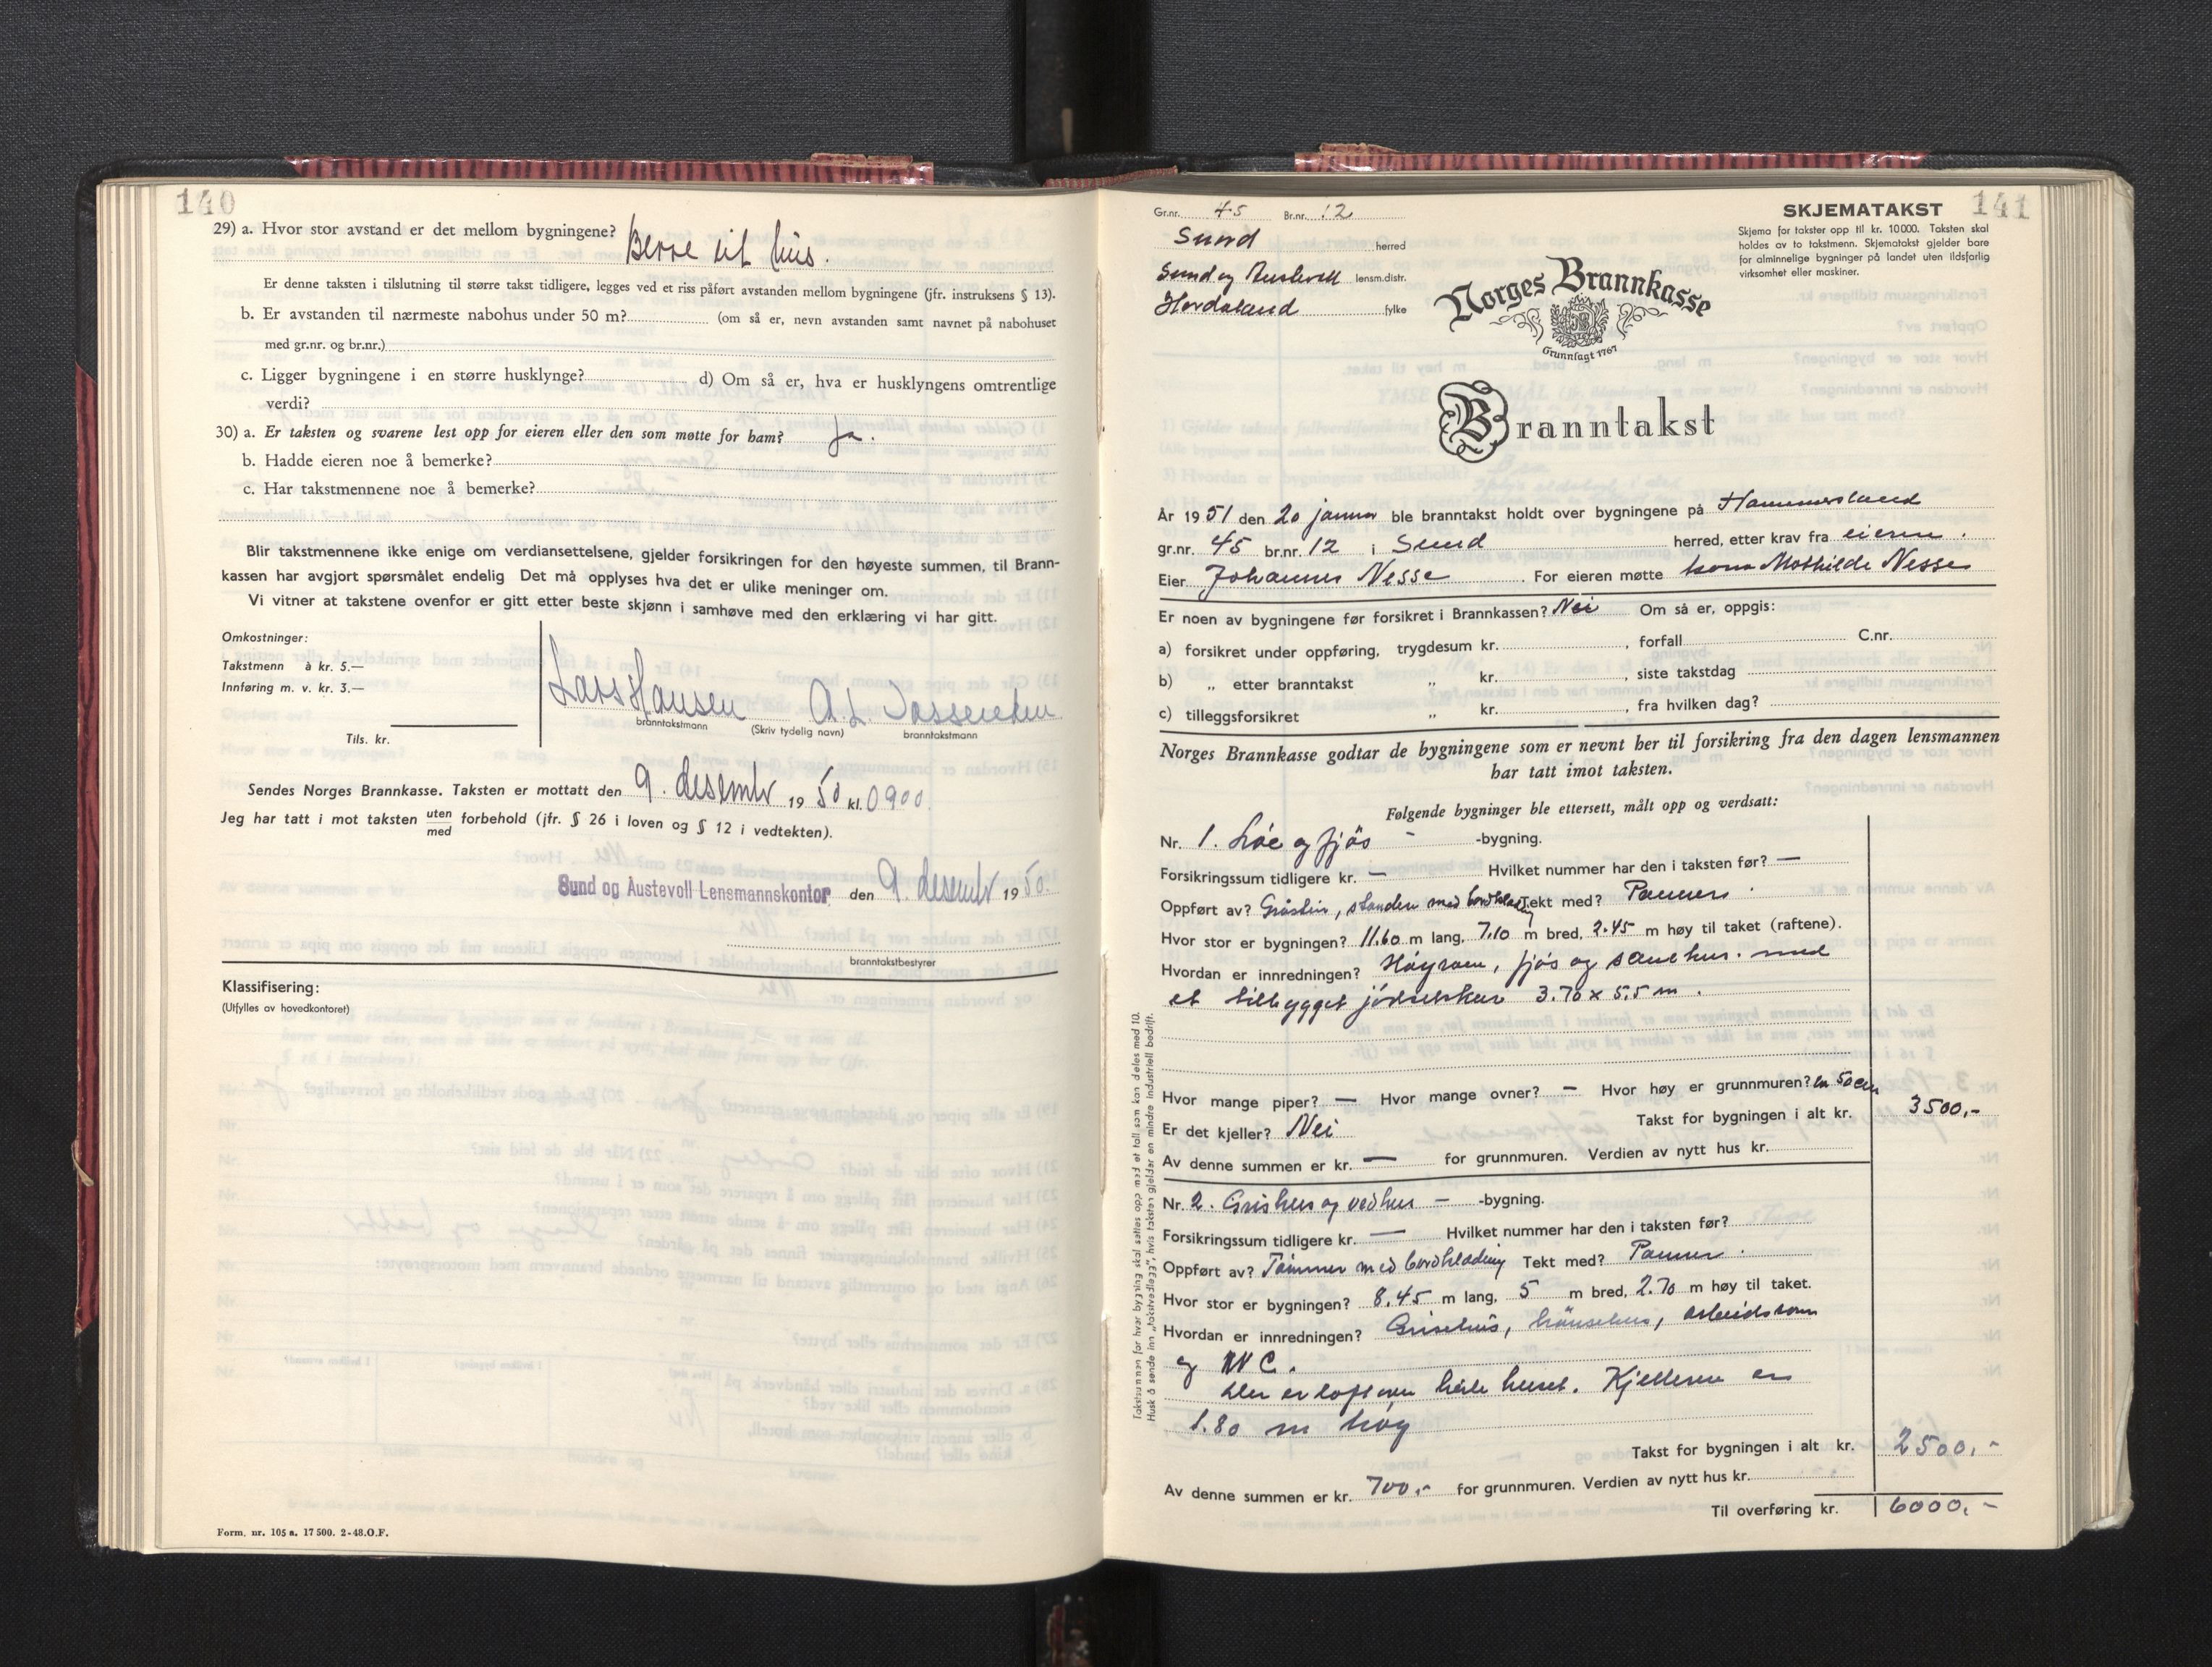 140
29) a. Hvor stor avstand er det mellom bygningene? Berre eit hus.
Er denne taksten i tilslutning til større takst tidligere, legges ved et riss påført avstanden mellom bygningene (jfr. instruksens § 13).
b. Er avstanden til nærmeste nabohus under 50 m? (om så er, nevn avstanden samt navnet på nabohuset
med gr.nr. og br.nr.)
c. Ligger bygningene i en større husklynge? d) Om så er, hva er husklyngens omtrentlige
verdi?
30) a. Er taksten og svarene lest opp for eieren eller den som møtte for ham? ja.
b. Hadde eieren noe å bemerke?
c. Har takstmennene noe å bemerke?
Blir takstmennene ikke enige om verdiansettelsene, gjelder forsikringen for den høyeste summen, til Brann-
kassen har avgjort spørsmålet endelig Det må opplyses hva det er ulike meninger om.
Vi vitner at takstene ovenfor er gitt etter beste skjønn i samhøve med den erklæring vi har gitt.
Omkostninger:
Takstmenn à kr. 5.—
Innføring m. v. kr. 3.—
Tils. kr.
Lars Hansen A. L.
branntakstmann (Skriv tydelig navn) branntakstmann
Sendes Norges Brannkasse. Taksten er mottatt den 9. desembr 1950 kl. 0900.
Jeg har tatt i mot taksten uten/med forbehold (jfr. § 26 i loven og § 12 i vedtekten).
Sund og Austevoll Lensmannskontor den 9. desembr 1950.
branntakstbestyrer
Klassifisering:
(Utfylles av hovedkontoret)
Form. nr. 105 a. 17 500. 2-48.O.F.
141
Gr.nr. 45 Br.nr. 12
Sund herred
Sund og Austevoll lensm.distr.
Hordaland fylke
SKJEMATAKST
Skjema for takster opp til kr. 10000. Taksten skal
holdes av to takstmenn. Skjematakst gjelder bare
for alminnelige bygninger på landet uten ildsfarlig
virksomhet eller maskiner.
Norges Brannkasse
Grunnlagt 1767
Branntakst
År 1951 den 20 januar ble branntakst holdt over bygningene på Hammersland
gr.nr. 45 br.nr. 12 i Sund herred, etter krav fra eieren.
Eier Johannes Nesse. For eieren møtte kona Mathilde Nesse
Er noen av bygningene før forsikret i Brannkassen? Nei Om så er, oppgis:
a) forsikret under oppføring, trygdesum kr. , forfall C.nr.
b) „ etter branntakst „ kr. , siste takstdag
c) tilleggsforsikret „ kr. , fra hvilken dag?
Norges Brannkasse godtar de bygningene som er nevnt her til forsikring fra den dagen lensmannen
har tatt imot taksten.
Følgende bygninger ble ettersett, målt opp og verdsatt:
Nr. 1. Løe og fjøs - -bygning.
Forsikringssum tidligere kr. — Hvilket nummer har den i taksten før? —
Oppført av? Gråstein, stander med bordkledning Tekt med? Panner.
Hvor stor er bygningen? 11.60 m lang, 7.10 m bred, 2.45 m høy til taket (raftene).
Hvordan er innredningen? Høyrom, fjøs og sauehus. med
et tilbygget jødselskur 3.70 x 5.5 m.
Hvor mange piper? — Hvor mange ovner? — Hvor høy er grunnmuren? ca 50 cm
Er det kjeller? Nei Takst for bygningen i alt kr. 3500,-
Av denne summen er kr. — for grunnmuren. Verdien av nytt hus kr.
Nr. 2. Grishus og vedhus - -bygning.
Forsikringssum tidligere kr. — Hvilket nummer har den i taksten før?
Oppført av? Tømmer med bordkledning Tekt med? Panner.
Hvor stor er bygningen? 8.45 m lang, 5 m bred, 2.70 m høy til taket.
Hvordan er innredningen? Grisehus, hønsehus, arbeidsrom
og WC.
Der er loft over hele huset. Kjelleren er
1.80 m høy
Takst for bygningen i alt kr. 2500,-
Av denne summen er kr. 700,- for grunnmuren. Verdien av nytt hus kr.
Til overføring kr. 6000,-
Takstsummen for hver bygning skal settes opp med et tall som kan deles med 10.
Husk å sende inn „takstvedlegg", hvis taksten gjelder en mindre industriell bedrift.